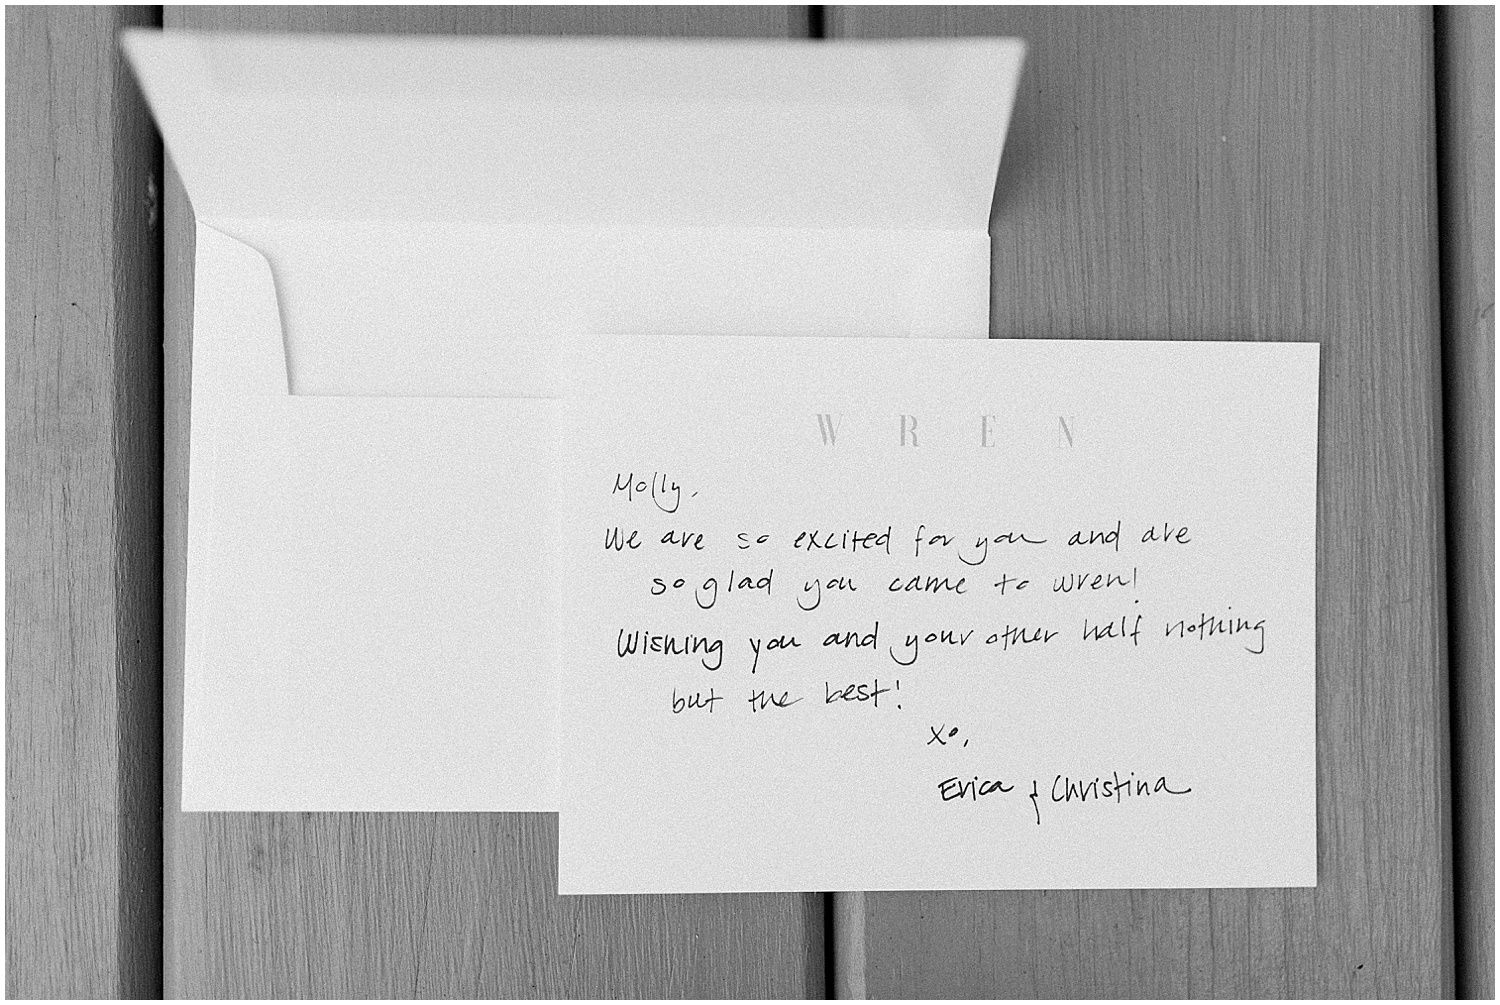 WREN
Molly,
We are so excited for you and are
so glad you came to wren!
Wishing you and your other half nothing
but the best!
xo,
Erica & Christina